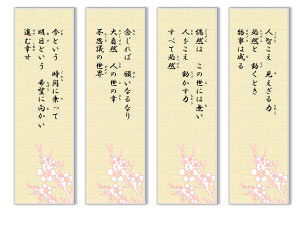 人智こえ 見えざる力
必然と 動くとき
物事は成る
偶然は この世には無い
人をこえ 動かす力
すべて必然
念じれば 願いなるなり
大自然 人の世の幸
不思議の世界
今という 時間に乗って
明日という 希望に向かい
進む幸せ